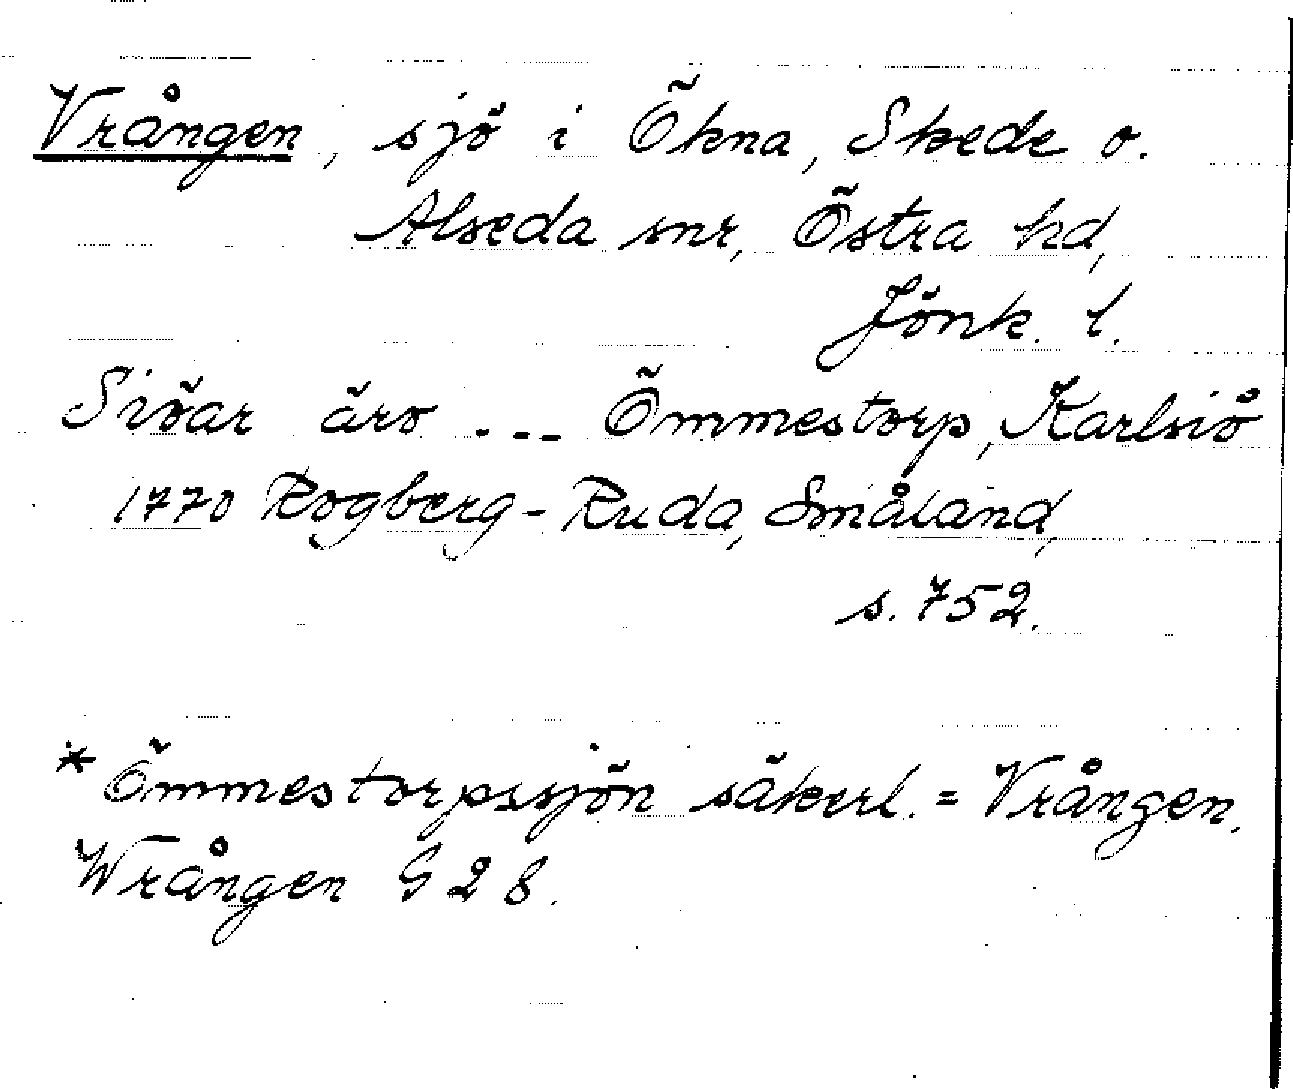 Vrången, sjö i Ökna, Skede o.
Alseda snr, Östra hd,
Jönk. l.
Siöar äro ... Ömmestorp, Karlsiö
1770 Rogberg-Ruda, Småland,
s. 752.
* Ömmestorpssjön säkerl. = Vrången,
Wrången G 28.